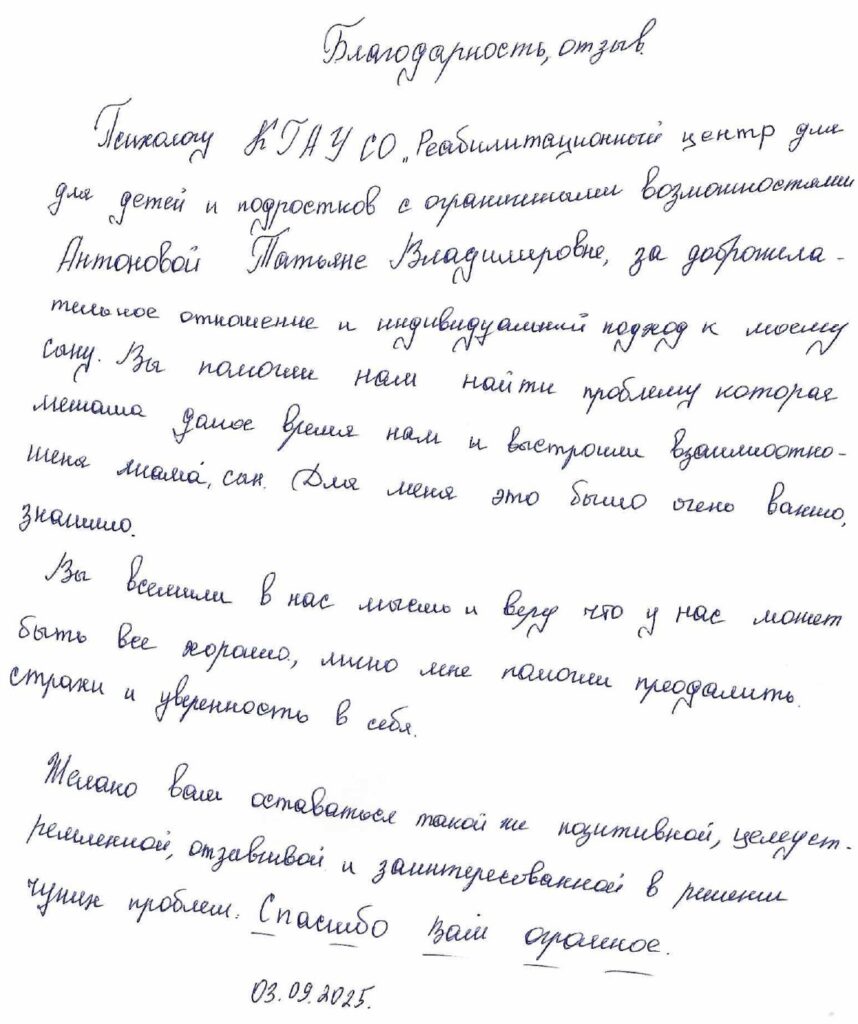 Благодарность, отзыв.
Психологу КГАУ СО „Реабилитационный центр для
для детей и подростков с ограничеными возможностями
Антоновой Татьяне Владимировне, за доброжела-
тельное отношение и индивидуальный подход к моему
сыну. Вы помогли нам найти проблему которая
мешала долгое время нам и выстроили взаимоотно-
шеня мама, сын. Для меня это было очень важно,
значимо.
Вы вселили в нас мысль и веру что у нас может
быть все хорошо, лично мне помогли преодалить
страхи и уверенность в себя.
Желаю вам оставаться такой же позитивной, целеуст-
ремленной, отзывшивой и заинтересованной в решении
чужих проблем. Спасибо Вам огромное.
03.09.2025.